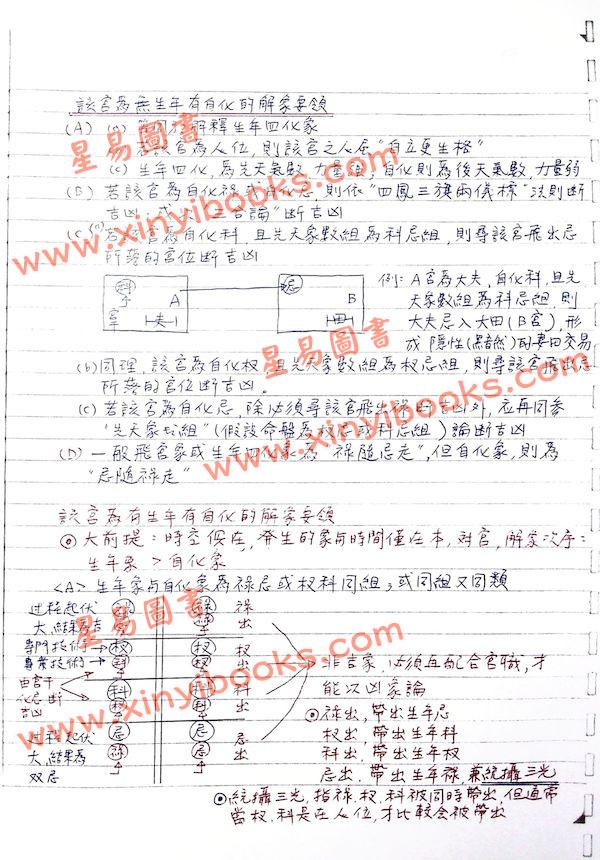 該宮為無生年有自化的解象要領
(A) (a) 等同於解釋生年四化象
若該宮為人位,則該宮之人屬"自立更生格"
(c) 生年四化,為先天氣數,力量強,自化則為後天氣數,力量弱
(B) 若該宮為自化祿或自化忌,則依"四鳳三旗兩儀標"法則斷
吉凶,或以"三合論"斷吉凶
(C) (a) 若該宮為自化科,且先天象數組為科忌組,則尋該宮飛出忌
所落的宮位斷吉凶
科 A 忌 B
夫 田
例:A宮為大夫,自化科,且先
天象數組為科忌組,則
大夫忌入大田(B宮),形
成隱性(黑暗)的妻田交易
(b) 同理,該宮為自化权,且先天象數組為权忌組,則尋該宮飛出忌
所落的宮位斷吉凶.
(c) 若該宮為自化忌,除必須尋該宮飛出祿斷吉凶外,亦再同參
"先天象數組"(假設命盤為权忌或科忌組)論斷吉凶
(D) 一般飛宮象或生年四化象為"祿隨忌走",但自化象,則為
"忌隨祿走"
該宮為有生年有自化的解象要領
◎大前提:時空保在,發生的象與時間僅在本,對宮,解象次序:
生年象 > 自化象
<A> 生年象與自化象為祿忌或权科同組,或同組又同類
过程起伏 祿 祿 祿
大,結果為吉 出
專門技術 权 权 权
專業技術 科 权 出
由宮干 科 科 科
化忌斷 出
吉凶 忌
过程起伏 忌 忌 忌
大,結果為 祿 忌 出
双忌
非吉象,必須再配合宮職,才
能以凶象論
◎祿出,帶出生年忌
权出,帶出生年科
科出,帶出生年权
忌出,帶出生年祿,兼統攝三光
◎統攝三光,指祿.权.科被同時帶出,但通常
當权.科是在人位,才比較会被帶出
星易圖書
www.xinyibooks.com
星易圖書
www.xinyibooks.com
星易圖書
www.xinyibooks.com
星易圖書
www.xinyibooks.com